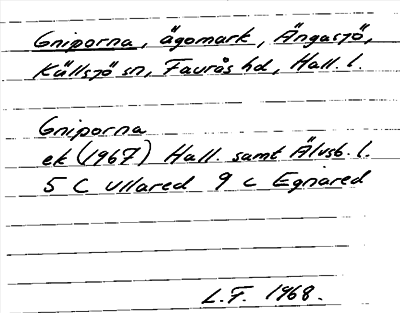 Gniporna, ägomark, Ängasjö,
Källsjö sn, Faurås hd, Hall. l.
Gniporna
ek (1967) Hall. samt Älvsb. l.
5 C Ullared 9 c Egnared
L.F. 1968.